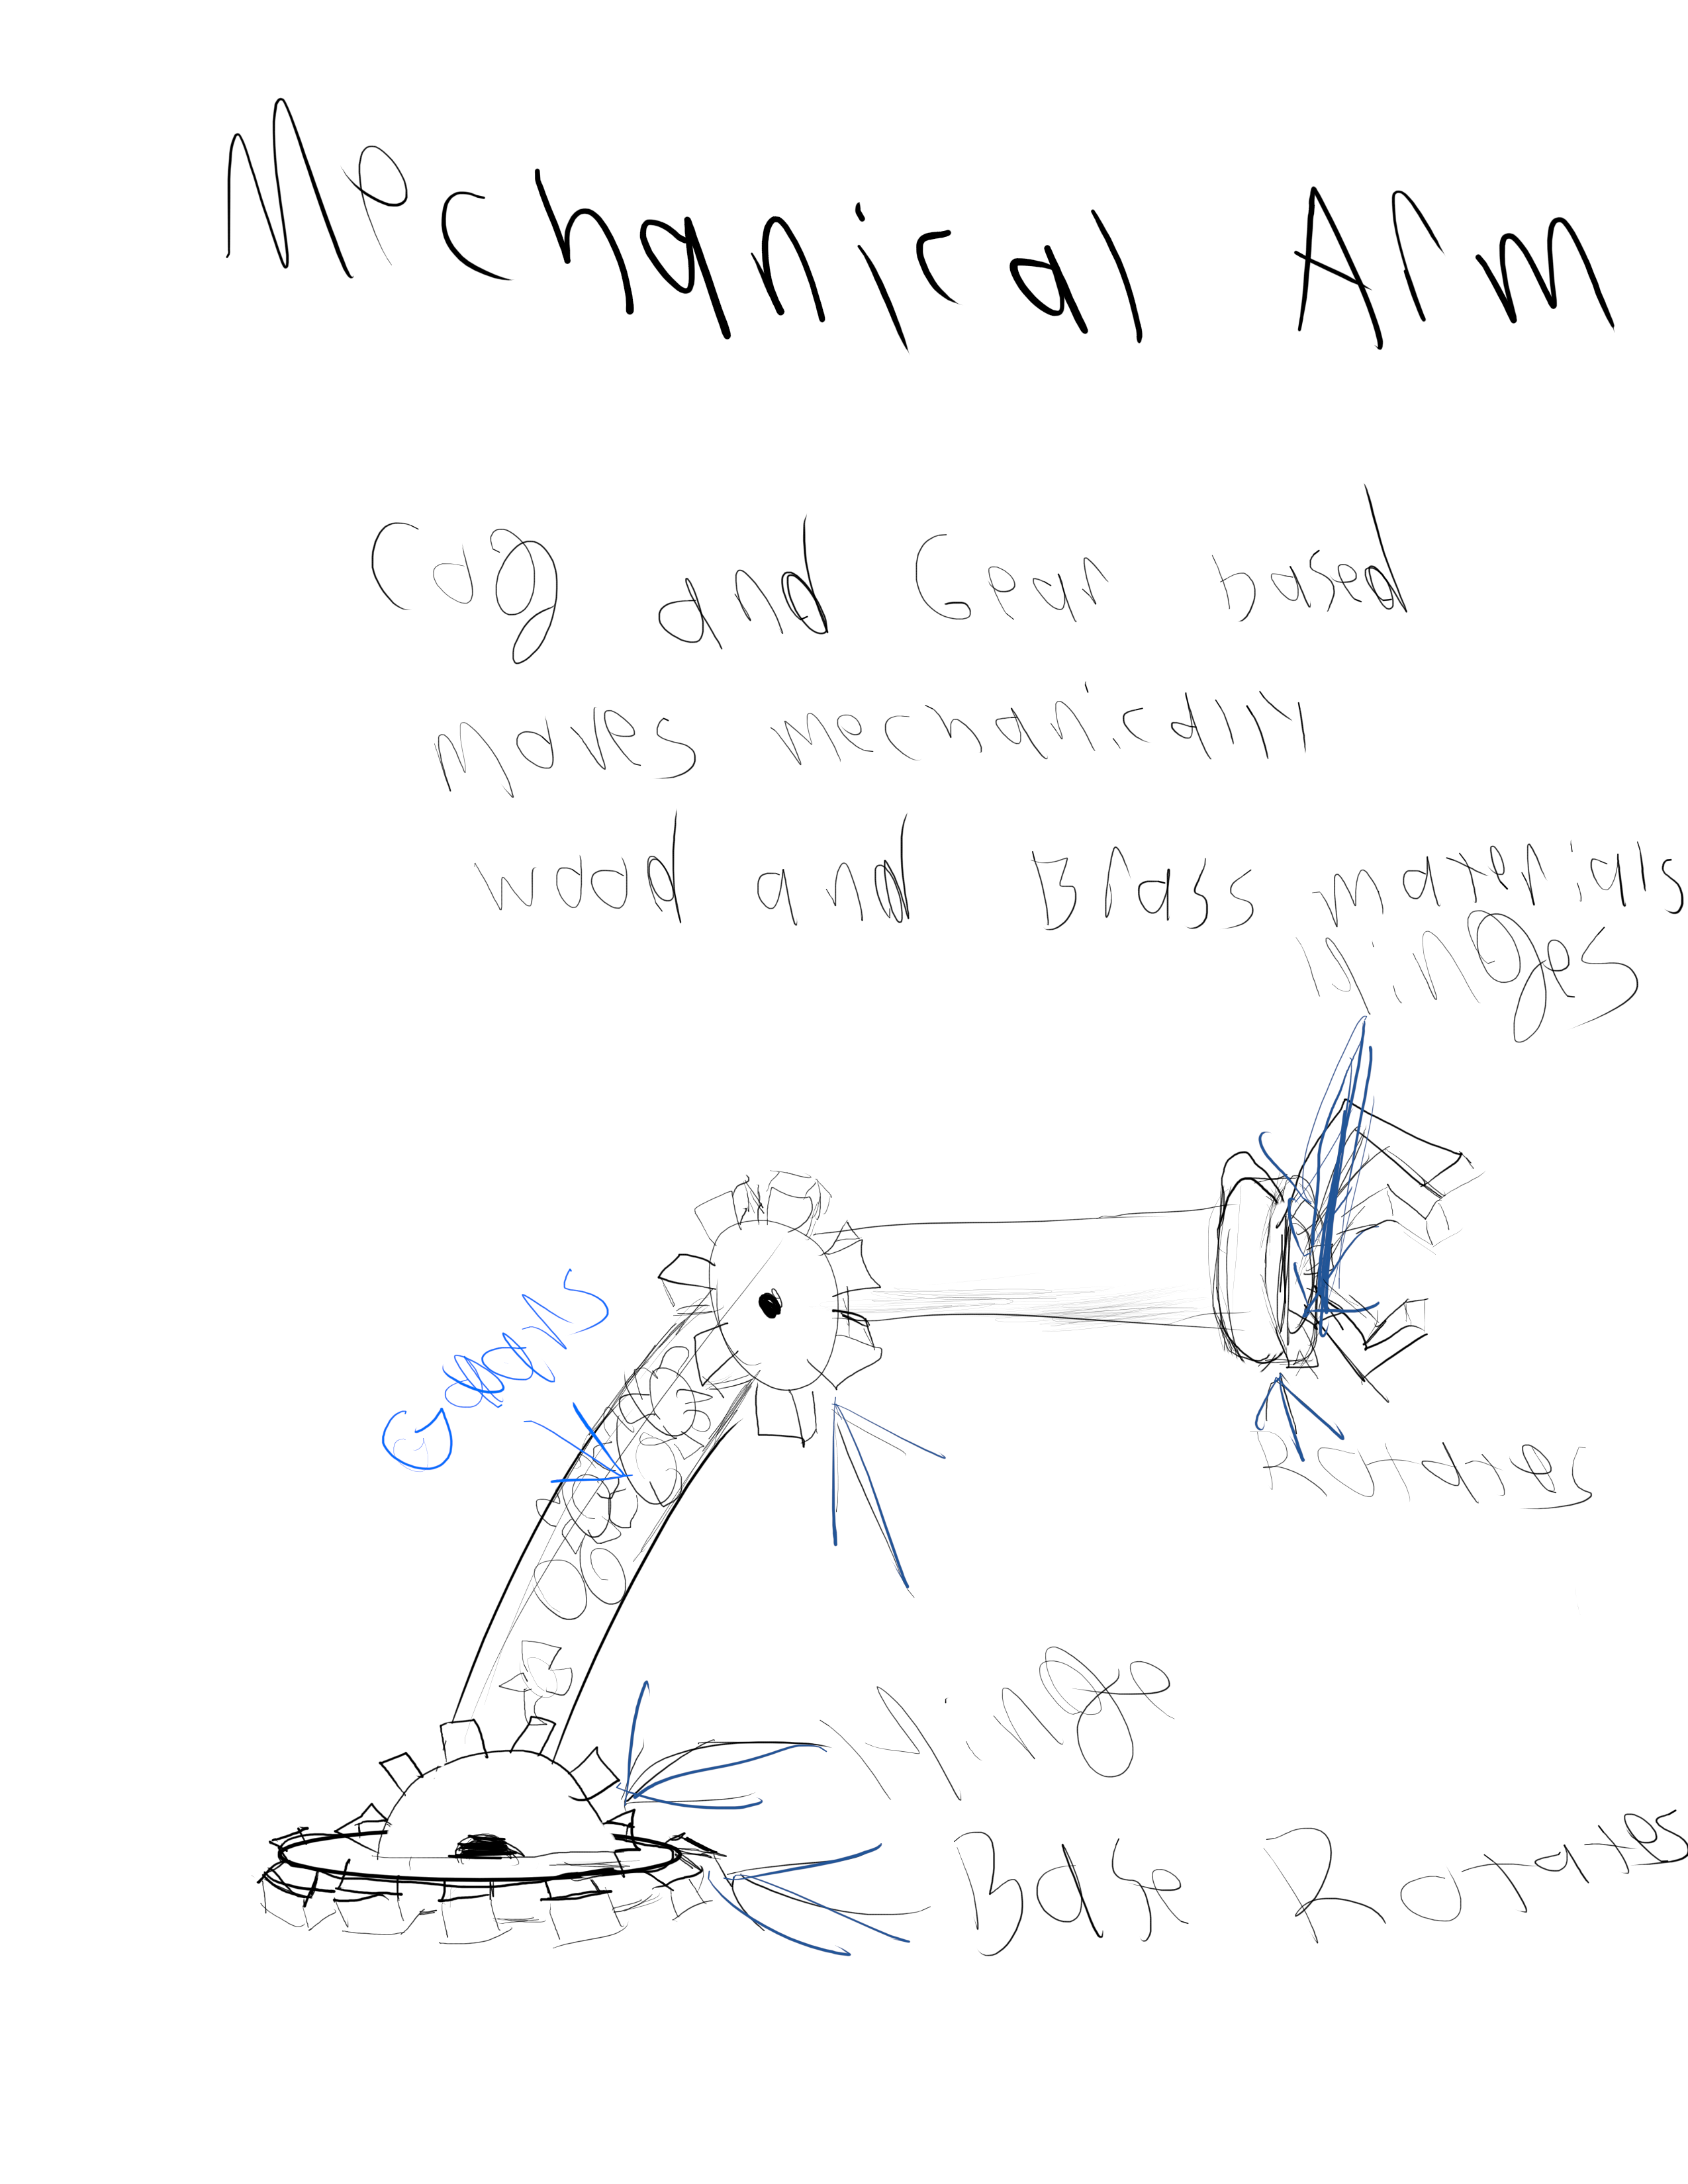 Mechanical Arm
Cog and Gear based
moves mechanically
wood and Brass materials
Hinges
Gears
Rotates
Hinge
Base Rotates